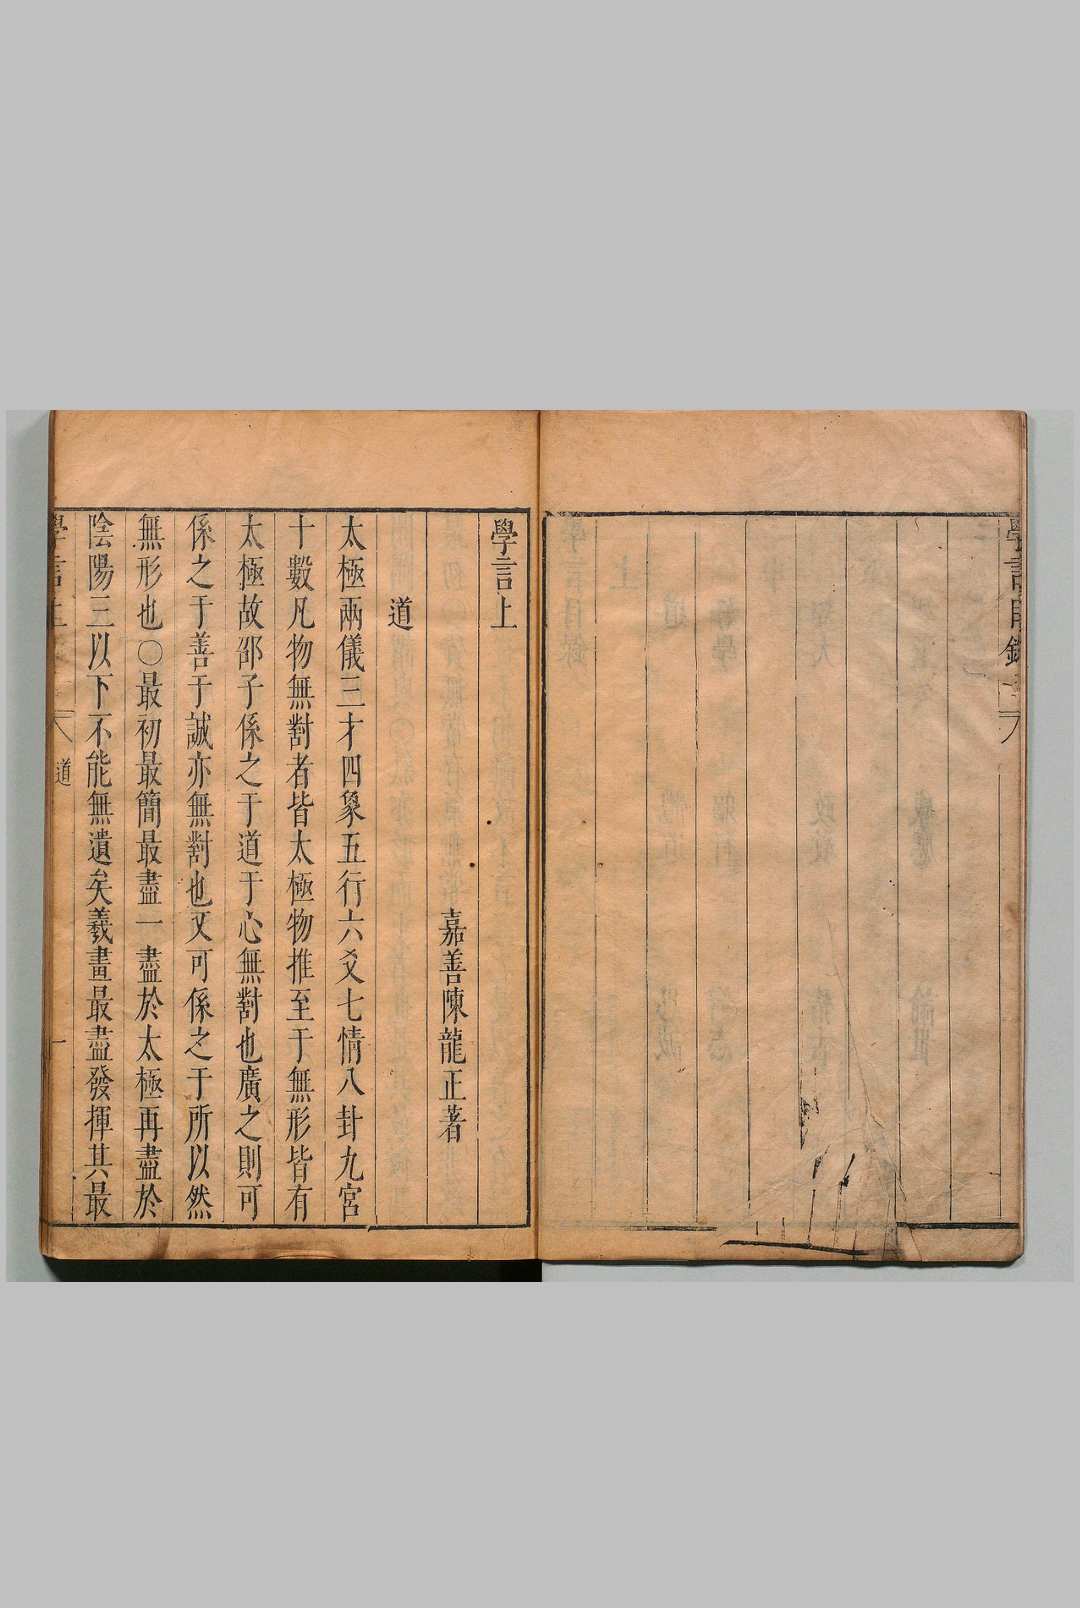 學言目錄
學言上
嘉善陳龍正著
道
太極兩儀三才四象五行六爻七情八卦九宮
十數凡物無對者皆太極物推至于無形皆有
太極故邵子係之于道于心無對也廣之則可
係之于善于誠亦無對也又可係之于所以然
無形也○最初最簡最盡一盡於太極再盡於
陰陽三以下不能無遺矣羲畫最盡發揮其最
學言上 道 一